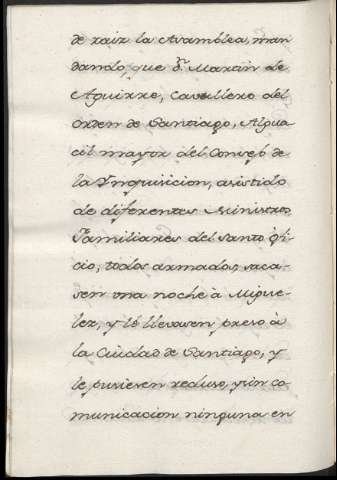 de raiz la Asamblea, man
dando, que Dn. Martin de
Aguirre, Cavallero del
Orden de Santiago, Algua
cil mayor del Consejo de
la Ynquisicion, asistido
de diferentes Ministros
Familiares del Santo Ofi
cio, todos armados, saca-
sen una noche à Migue-
lez, y lè llevasen preso à
la Ciudad de Santiago, y
le pusiesen recluso, y sin co
municacion ninguna en